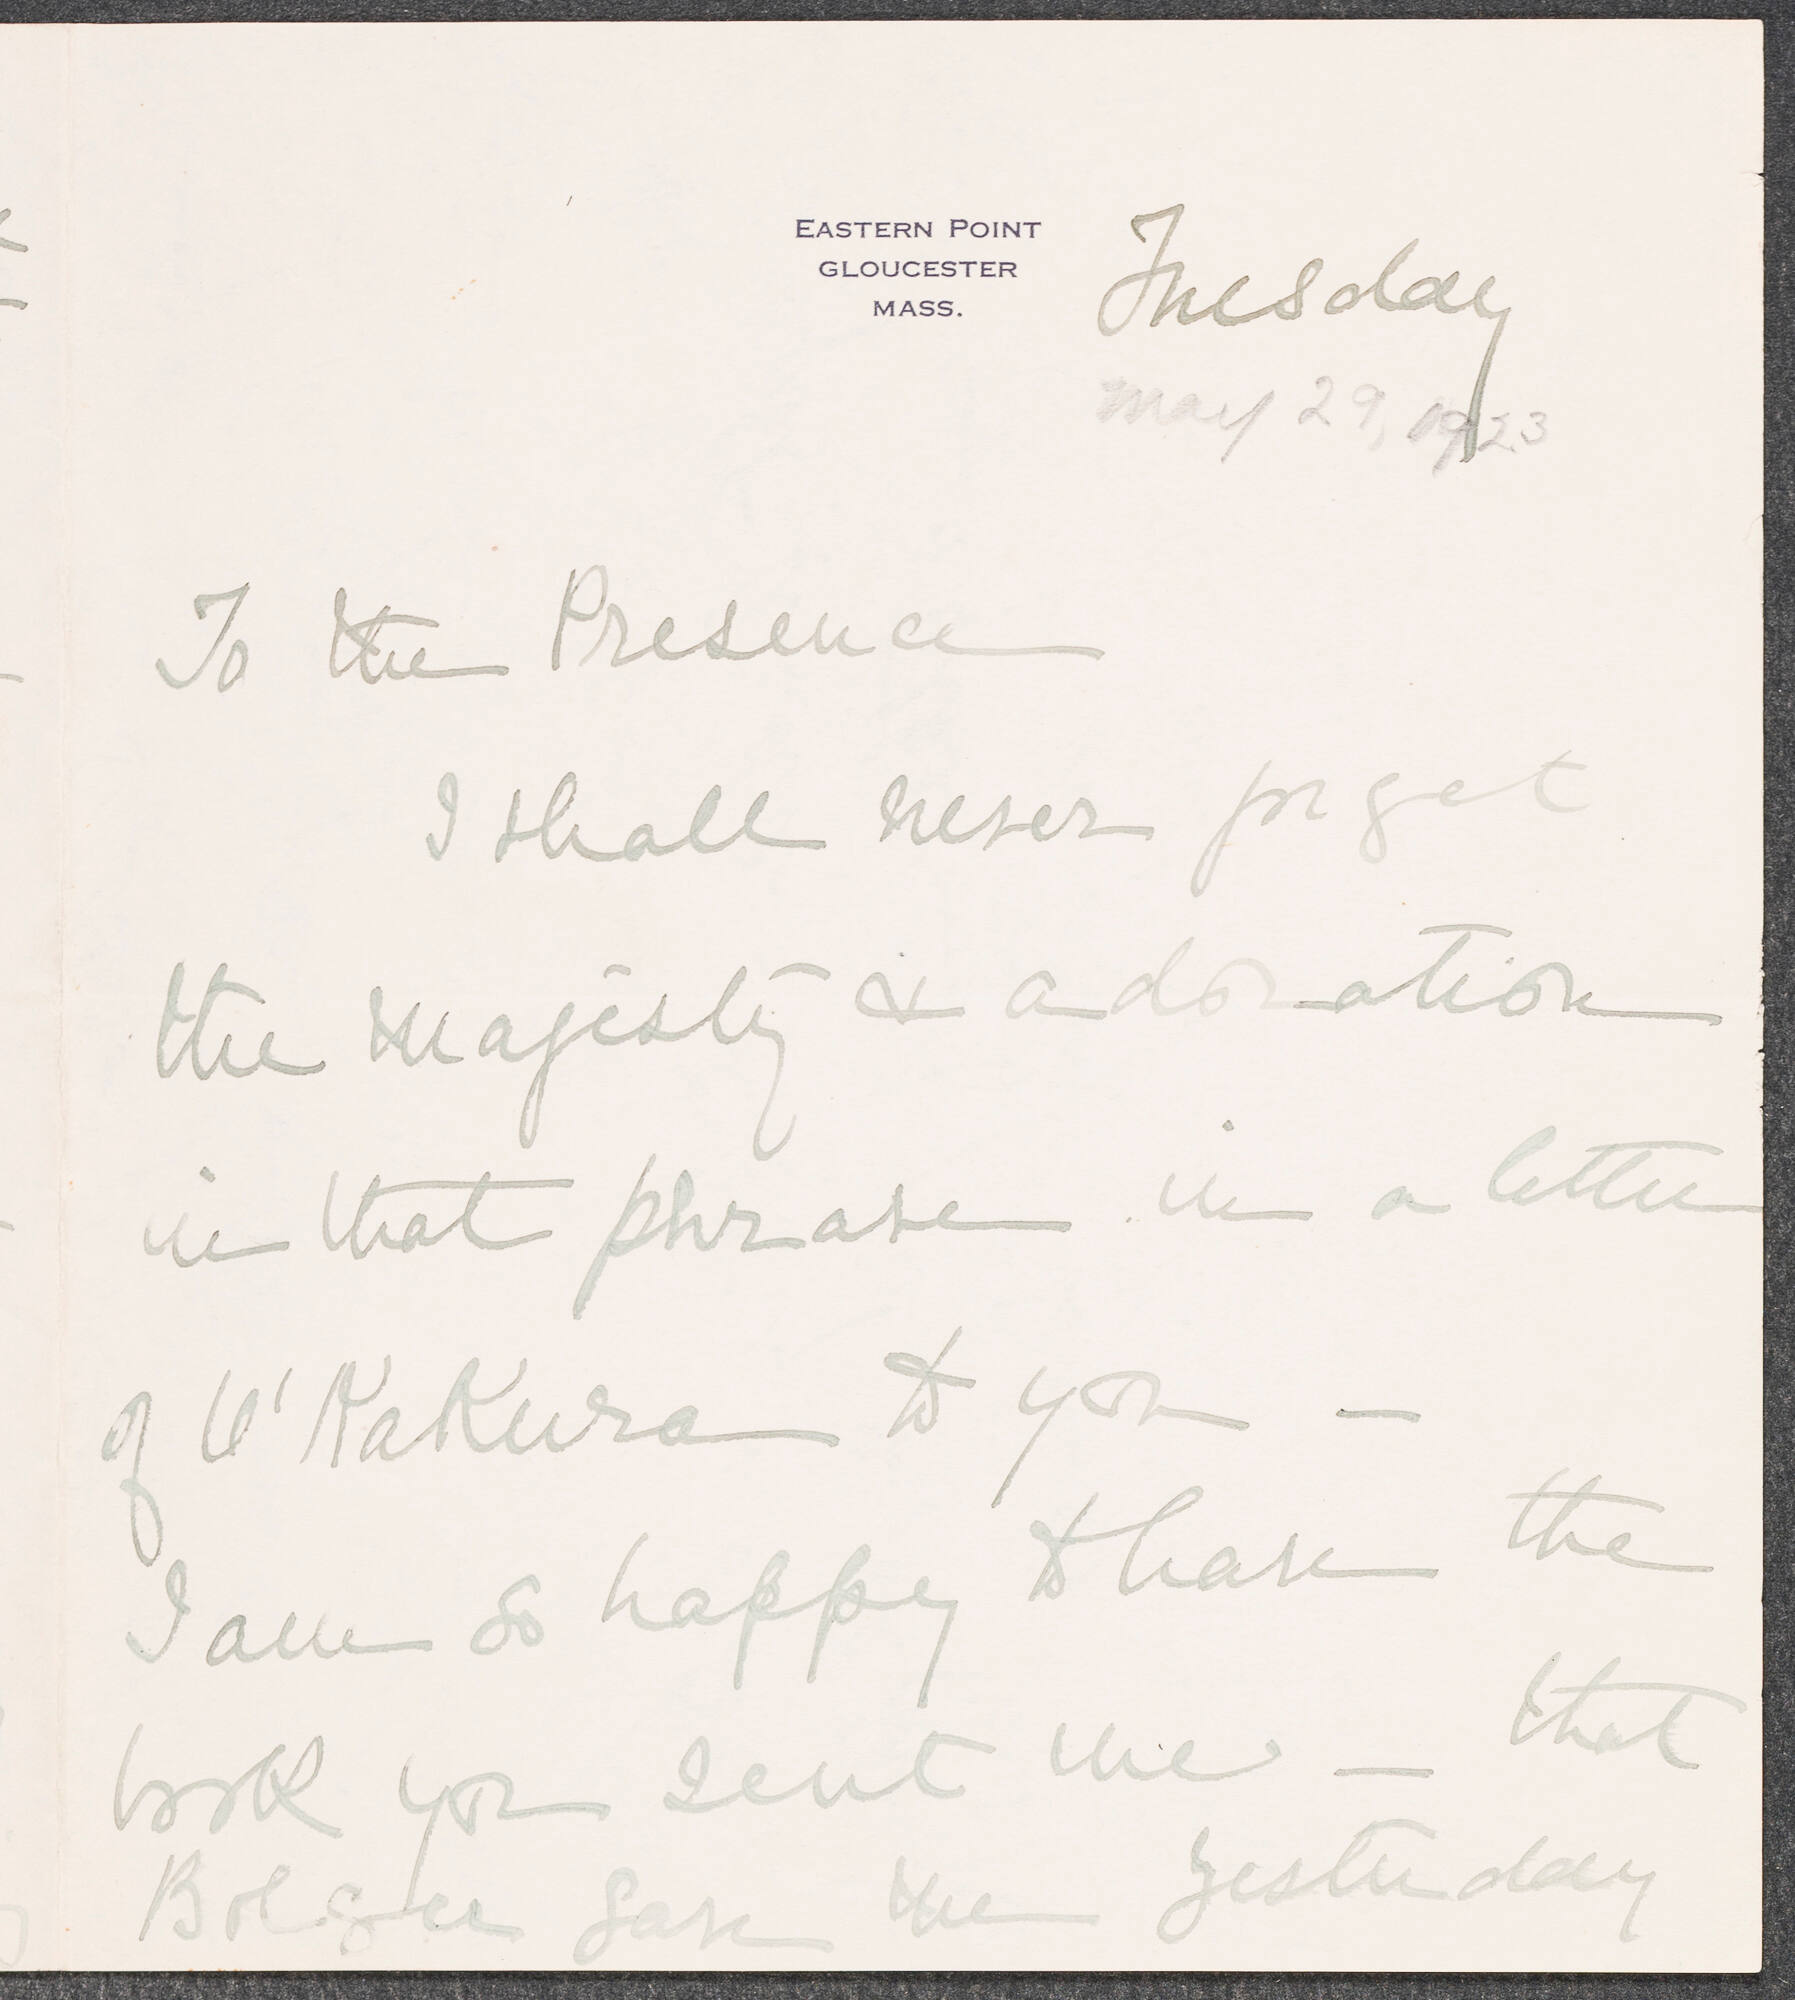 EASTERN POINT
GLOUCESTER
MASS.
Tuesday
May 29, 1923
To the Presence
I shall never forget
the majesty & adoration
in that phrase in a letter
of O'Kakura to you —
I am so happy to have the
book you sent me — that
Bolgee gave me yesterday